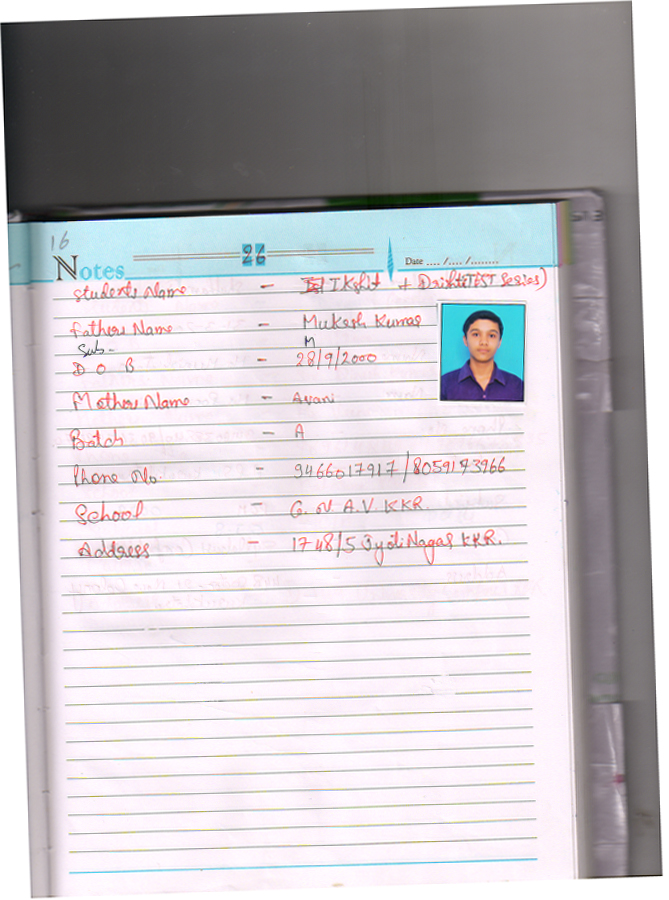 16
26
Notes
Date ..../..../........
Students Name - IKshit + Drishti (TEST Series)
Fathers Name - Mukesh Kumar
Sub - M
D O B - 28/9/2000
Mothers Name - Avani
Batch - A
Phone No. - 9466017917/8059173966
School - G. N A.V. KKR.
Address - 1748/5 Jyoti Nagar KKR.